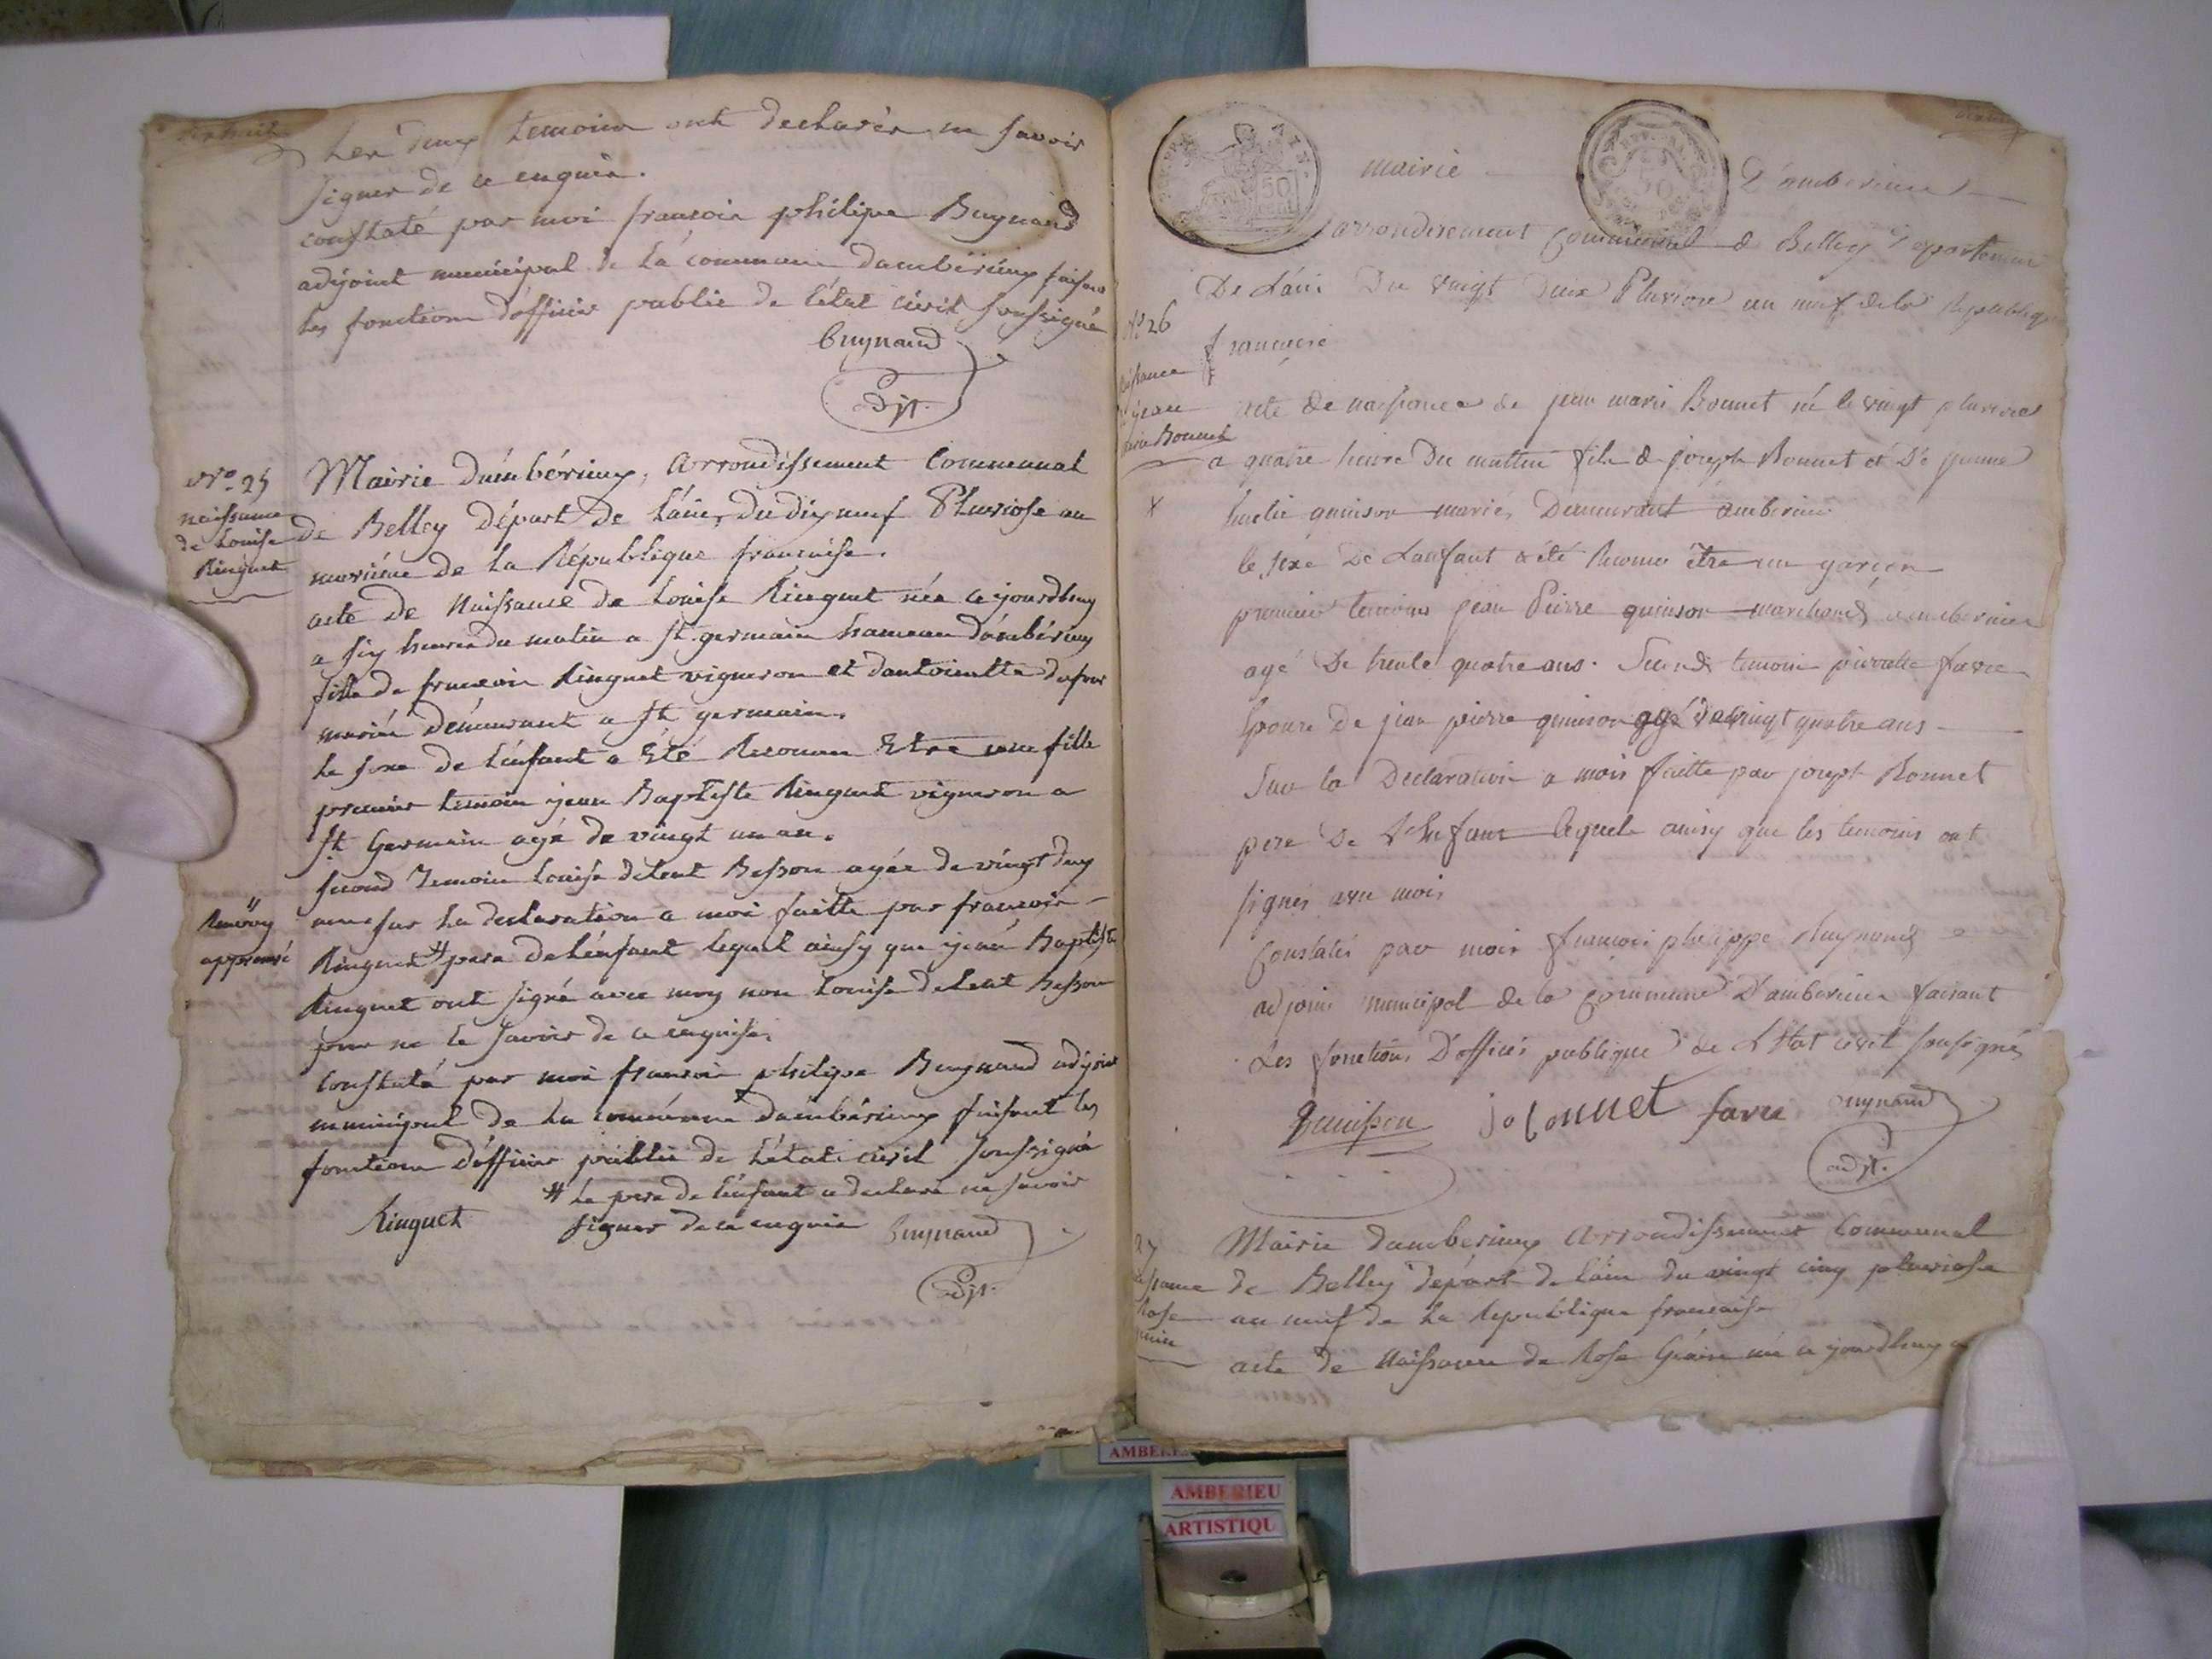 Les deux temoins ont declarés ne savoir
signer de ce enquis.
constaté par moi françois philipe Buynand
adjoint municipal de la commune dambérieux faisant
les fonctions d'officier public de létat civil soussigné
Buynand
adjt.
No. 25
naissance
de Louise
Ringuet
Mairie dámbérieux, Arrondissement Communal
de Belley Départ de Láin, du dix neuf Pluviose an
neuvième de la République française.
acte de Naissance de Louise Ringuet née cejourdhuy
a six heures du matin a St. germain hameau dámbérieux
fille de françois Ringuet vigneron et dantoinette dufour
mariés démeurant a St germain.
le sexe de lénfant a Eté Reconnu Etre une fille
premier temoin jean Baptiste Ringuet vigneron a
St. Germain agé de vingt un an.
second Temoin Louise deleat Besson agée de vingt deux
ans sur la declaration a moi faitte par françois
Ringuet # pere de lénfant lequel ainsy que jean Baptiste
Ringuet ont signé avec moy non Louise deleat Besson
pour ne le savoir de ce enquise.
Renvoy
approuvé
Constaté par moi françois philipe Buynand adjoint
municipal de la commune dambérieux faisant les
fonctions d'officier public de létat civil soussigné
# Le pere de lénfant a declaré ne savoir
signer de ce enquis
Ringuet
Buynand
adjt.
mairie D'amberieux
arrondisement Communal de Belley Departement
De Láin Du vingt Deux Pluviose an neuf de la Republique
française
No 26
naissance
de jean
marie Bonnet
acte de naissance de jean marie Bonnet né le vingt pluviose
a quatre heure Du mattin fils de joseph Bonnet et De jeanne
quinson mariés Demeurant amberieu
le sexe De Lanfant a été Reconu être un garçon
premier temoins jean Pierre quinson marchand a amberieu
agé De trente quatre ans. Second temoin favre
Epouse De jean pierre quinson agé de vingt quatre ans
Sur la Declaration a mois faitte par joseph Bonnet
pere De L'Enfant lequele ainsy que les temoins ont
signés avec mois
Constatés par mois françois philippe Buynand
adjoint municipal de la Commune D'amberieu faisant
Les fonctions D'officiés publique de L'Etat civil sousigné
quinson jo bonnet favre Buynand
adjt.
27
Mairie dambérieux Arrondissement Communal
de Belley départ de láin du vingt cinq pluviose
an neuf de la Republique française
acte de Naissance de Rose née ce jourdhuy a
AMBERIEU
ARTISTIQU